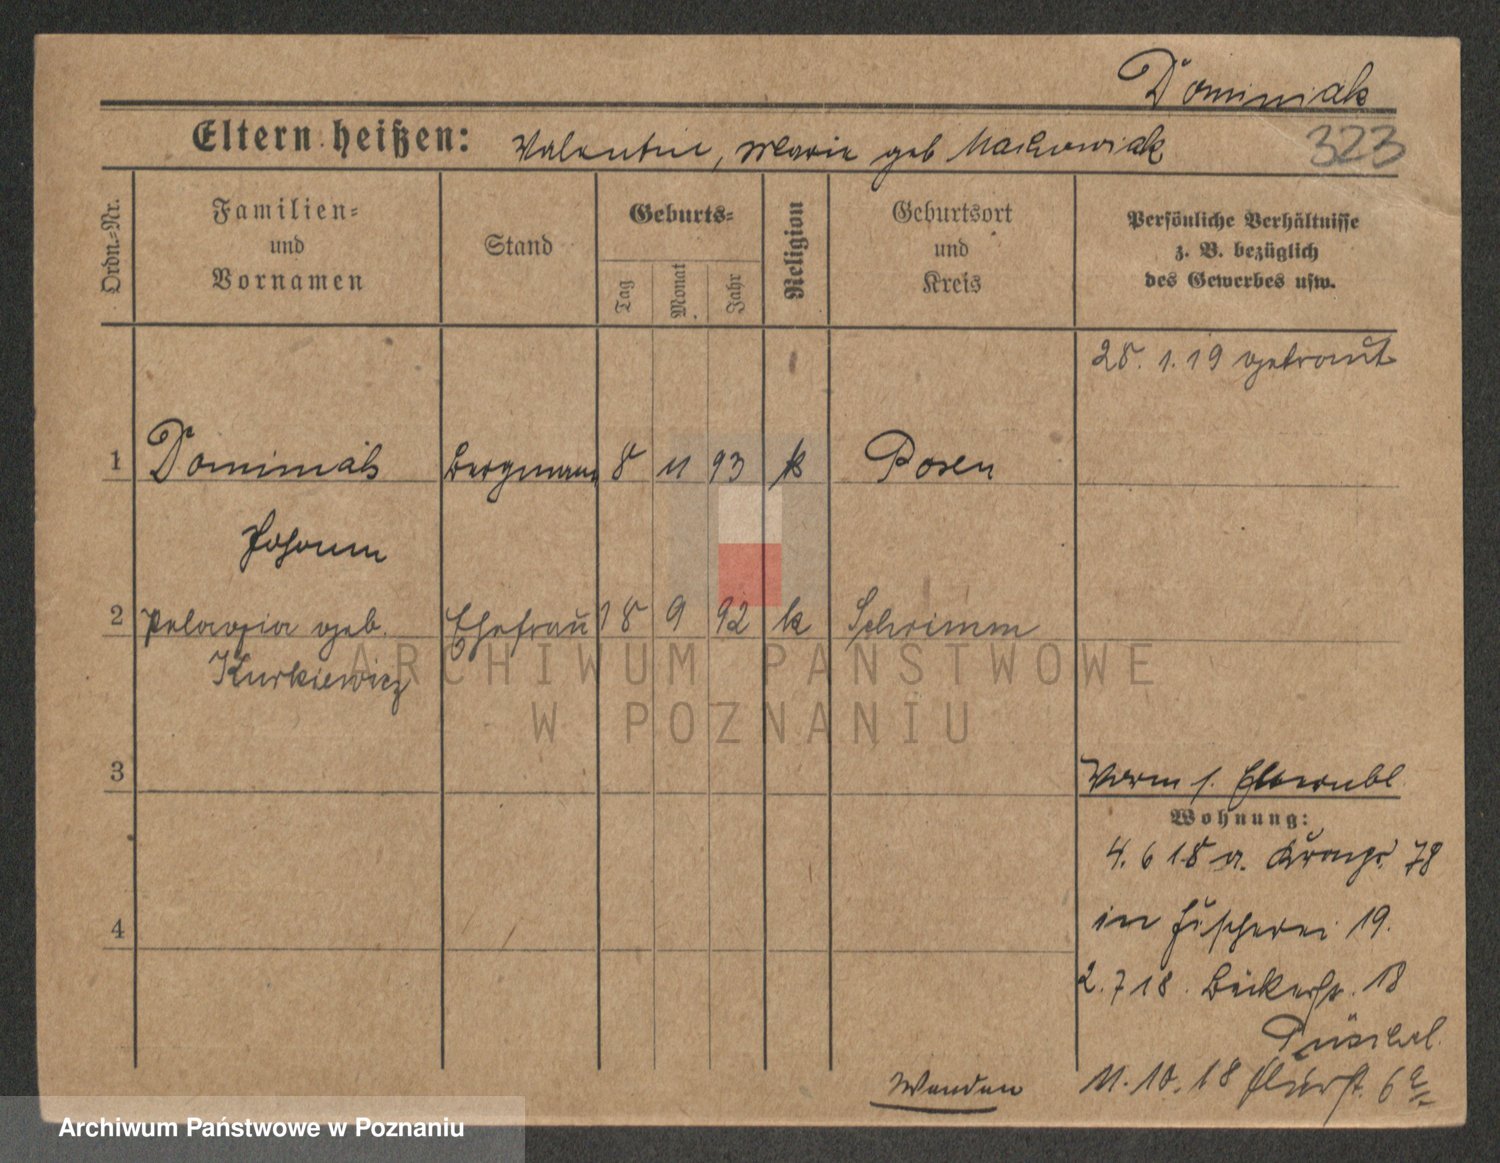 Dominiak
Eltern heißen: Valentin, Marie geb Maćkowiak
323
Ordn.=Nr.
Familien=
und
Vornamen
Stand
Geburts=
Tag
Monat
Jahr
Religion
Geburtsort
und
Kreis
Persönliche Verhältnisse
z. B. bezüglich
des Gewerbes usw.
28. 1. 19 getraut
1 Dominiak Bergmann 8 11 93 k Posen
Johann
2 Pelagia geb. Ehefrau 18 9 92 k Schrimm
Kurkiewicz
3
4
Verm s. Elternbl.
Wohnung:
4. 6 18 a. 78
in Fischerei 19.
2. 7 18. Bäckerstr. 18
11. 10. 18 Flurst. 6
Wenden
ARCHIWUM PAŃSTWOWE
W POZNANIU
Archiwum Państwowe w Poznaniu